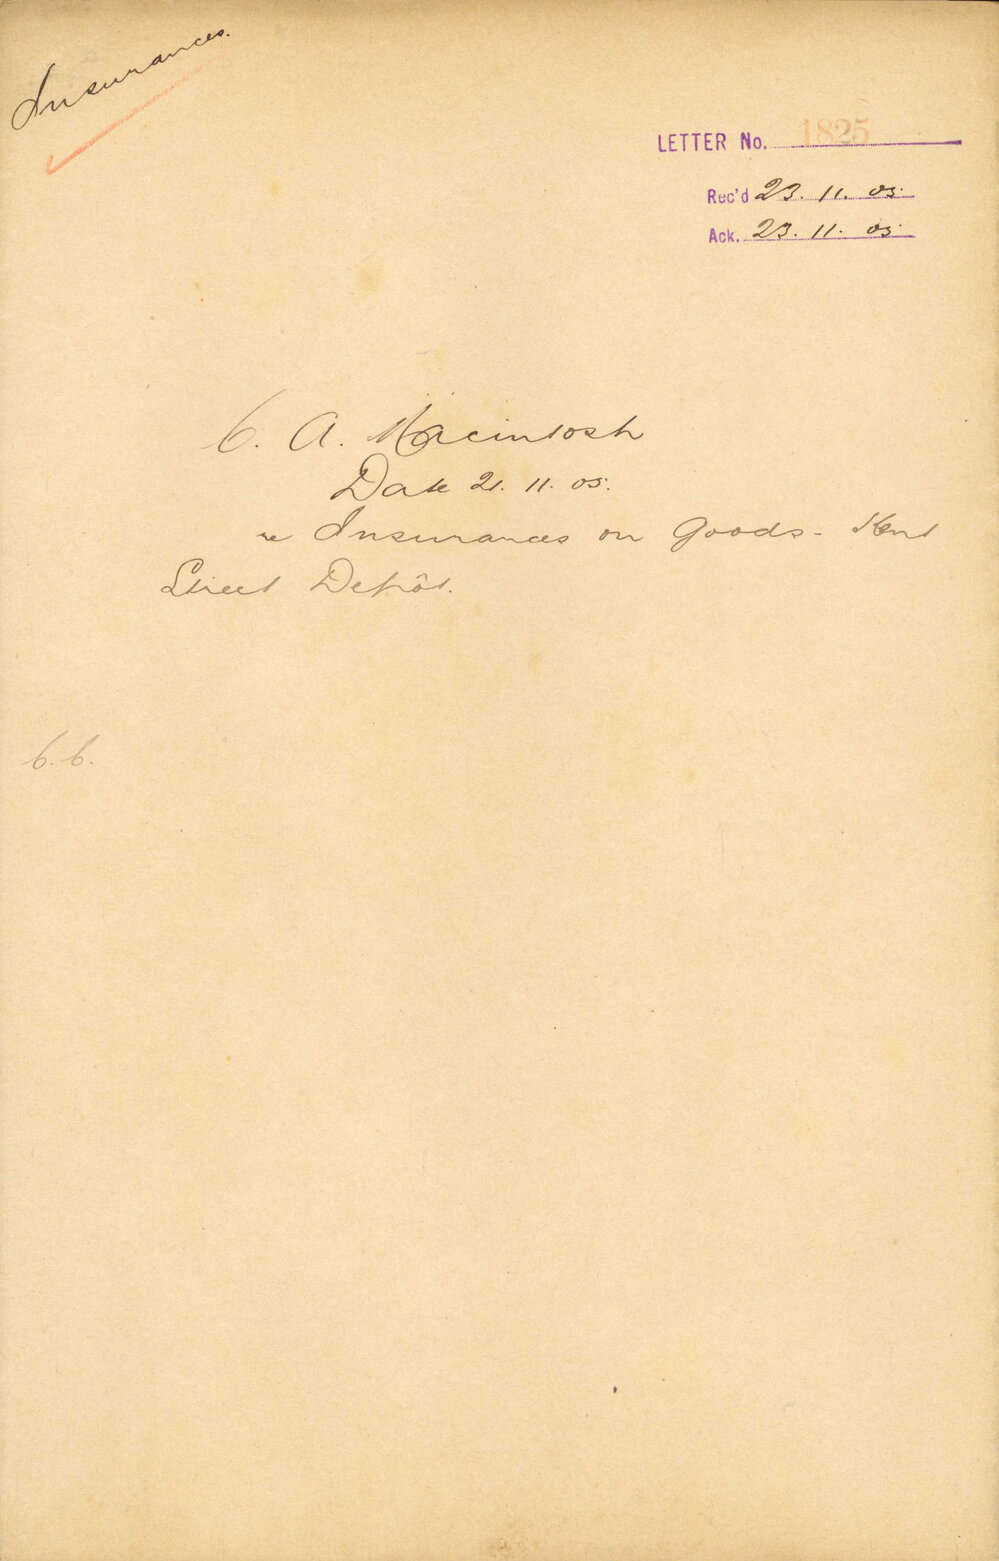 Insurances.
LETTER No. 1825
Rec'd 23. 11. 05.
Ack. 23. 11. 05.
C. A. Macintosh
Date 21. 11. 05.
re Insurances on Goods - Kent
Street Depôt.
C.C.